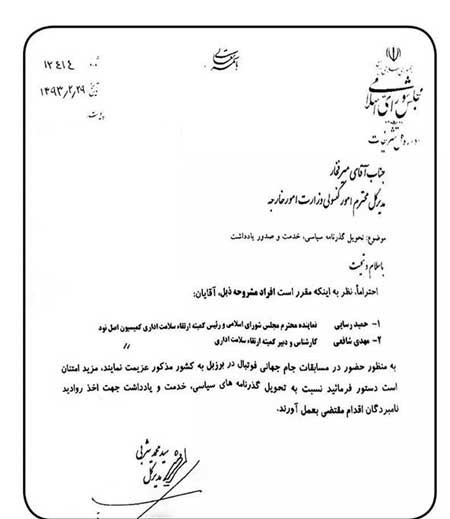 باسمه تعالی
جمهوری اسلامی
مجلس شورای اسلامی
اداره کل تشریفات
شماره ۱۲۴۱۴
تاریخ ۱۳۹۳٫۲٫۲۹
پیوست
جناب آقای میرفخار
مدیرکل محترم امور کنسولی وزارت امور خارجه
موضوع: تحویل گذرنامه سیاسی، خدمت و صدور یادداشت
باسلام و تحیت
احتراماً، نظر به اینکه مقرر است افراد مشروحه ذیل، آقایان:
۱- حمید رسایی نماینده محترم مجلس شورای اسلامی و رئیس کمیته ارتقاء سلامت اداری کمیسیون اصل نود
۲- مهدی شافعی کارشناس و دبیر کمیته ارتقاء سلامت اداری //
به منظور حضور در مسابقات جام جهانی فوتبال در برزیل به کشور مذکور عزیمت نمایند، مزید امتنان
است دستور فرمائید نسبت به تحویل گذرنامه های سیاسی، خدمت و یادداشت جهت اخذ روادید
نامبردگان اقدام مقتضی بعمل آورند.
سید محمد یثربی
مدیرکل